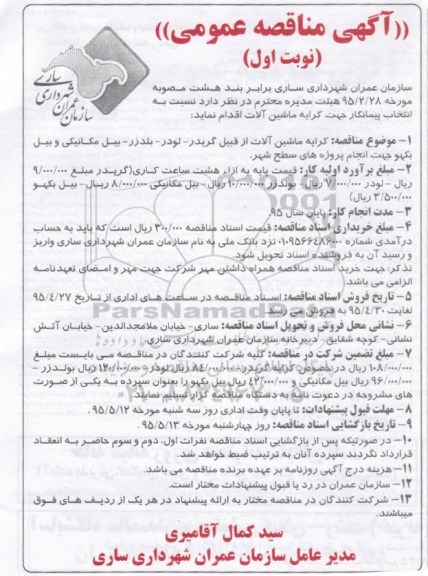 ((آگهی مناقصه عمومی))
(نوبت اول)
سازمان عمران شهرداری ساری
سازمان عمران شهرداری ساری برابر بند هشت مصوبه
مورخه ۹۵/۲/۲۸ هیئت مدیره محترم در نظر دارد نسبت به
انتخاب پیمانکار جهت کرایه ماشین آلات اقدام نماید:
۱- موضوع مناقصه: کرایه ماشین آلات از قبیل گریدر- لودر- بلدزر- بیل مکانیکی و بیل
بکهو جهت انجام پروژه های سطح شهر.
۲- مبلغ برآورد اولیه کار: قیمت پایه به ازار هشت ساعت کاری(گریدر مبلغ ۹/۰۰۰/۰۰۰
ریال - لودر ۷/۰۰۰/۰۰۰ ریال- بولدزر ۱۰/۰۰۰/۰۰۰ ریال- بیل مکانیکی ۸/۰۰۰/۰۰۰ ریال- بیل بکهو
۳/۵۰۰/۰۰۰ ریال)
۳- مدت انجام کار: پایان سال ۹۵.
۴- مبلغ خریداری اسناد مناقصه: قیمت اسناد مناقصه ۳۰۰/۰۰۰ ریال است که باید به حساب
درآمدی شماره ۰۱۰۹۵۶۶۴۸۶۰۰۰ نزد بانک ملی به نام سازمان عمران شهرداری ساری واریز
و رسید آن به فروشنده اسناد تحویل شود.
تذکر: جهت خرید اسناد مناقصه همراه داشتن مهر شرکت جهت مهر و امضای تعهدنامه
الزامی می باشد.
۵- تاریخ فروش اسناد مناقصه: اسناد مناقصه در ساعت های اداری از تاریخ ۹۵/۴/۲۷
لغایت ۹۵/۴/۳۰ به فروش می رسد.
۶- نشانی محل فروش و تحویل اسناد مناقصه: ساری- خیابان ملامجدالدین- خیابان آتش
نشانی- کوچه شقایق - دبیرخانه سازمان عمران شهرداری ساری
۷- مبلغ تضمین شرکت در مناقصه: کلیه شرکت کنندگان در مناقصه می بایست مبلغ
۱۰۸/۰۰۰/۰۰۰ ریال در خصوص کرایه گریدر- ۸۴/۰۰۰/۰۰۰ ریال لودر- ۱۲۰/۰۰۰/۰۰۰ ریال بولدزر -
۹۶/۰۰۰/۰۰۰ ریال بیل مکانیکی و ۴۲/۰۰۰/۰۰۰ ریال بیل بکهو را بعنوان سپرده به یکی از صورت
های مشروحه در دعوت نامه به دستگاه مناقصه گزار تسلیم نمایند.
۸- مهلت قبول پیشنهادات: تا پایان وقت اداری روز سه شنبه مورخه ۹۵/۵/۱۲.
۹- تاریخ بازگشایی اسناد مناقصه: روز چهارشنبه مورخه ۹۵/۵/۱۳.
۱۰- در صورتیکه پس از بازگشایی اسناد مناقصه نفرات اول، دوم و سوم حاضر به انعقاد
قرارداد نگردند سپرده آنان به ترتیب ضبط خواهد شد.
۱۱- هزینه درج آگهی روزنامه بر عهده برنده مناقصه می باشد.
۱۲- سازمان عمران در رد یا قبول پیشنهادات مختار است.
۱۳- شرکت کنندگان در مناقصه مختار به ارائه پیشنهاد در هر یک از ردیف های فوق
میباشند.
سید کمال آقامیری
مدیر عامل سازمان عمران شهرداری ساری
ParsNamadData